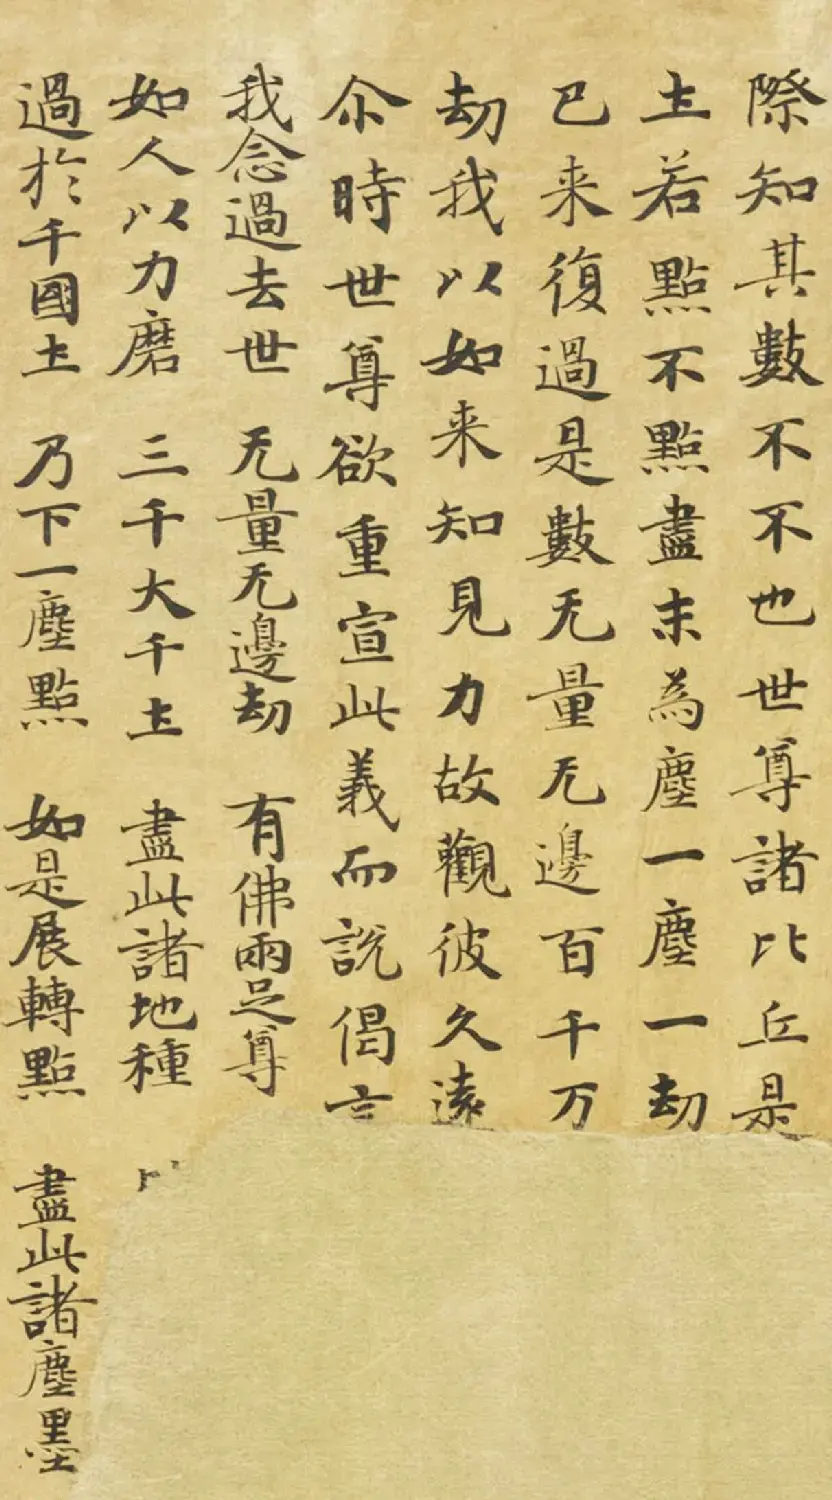 際知其數不不也世尊諸比丘是
土若點不點盡末為塵一塵一劫
已来復過是數无量无邊百千万
劫我以如来知見力故觀彼久遠
尒時世尊欲重宣此義而說偈言
我念過去世 无量无邊劫 有佛兩足尊
如人以力磨 三千大千土 盡此諸地種
過於千國土 乃下一塵點 如是展轉點 盡此諸塵墨